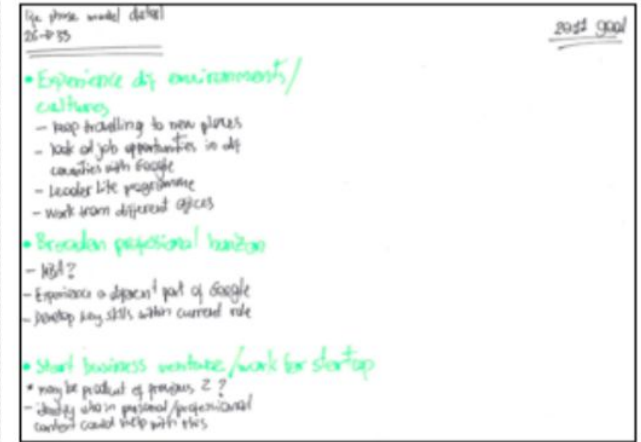 life phase model detail
26 → 35
2011 goal
• Experience dif environments/
cultures
- keep travelling to new places
- look at job opportunities in dif
countries with Google
- Leader Lite programme
- work from different offices
• Broaden professional horizon
- MBA?
- Experience a different part of Google
- Develop key skills within current role
• Start business venture/work for startup
* may be product of previous 2?
- identify who in personal/professional
context could help with this